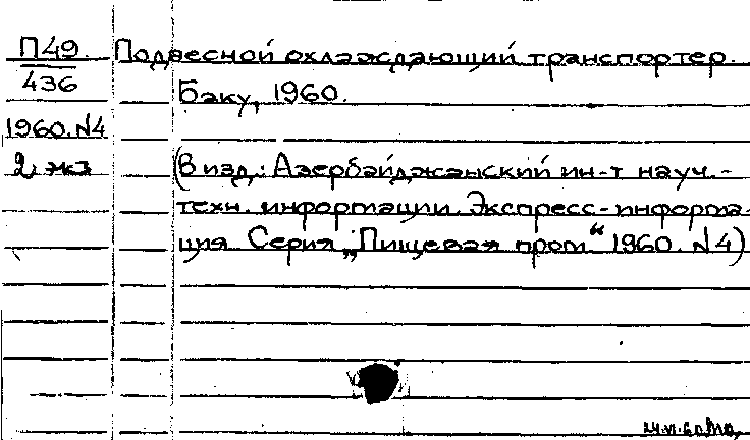 П49 Подвесной охлаждающий транспортер.
436 Баку, 1960.
1960.N4
2 экз (В изд.: Азербайджанский ин-т науч.-
техн. информации. Экспресс-информа-
ция. Серия „Пищевая пром“ 1960. N4)